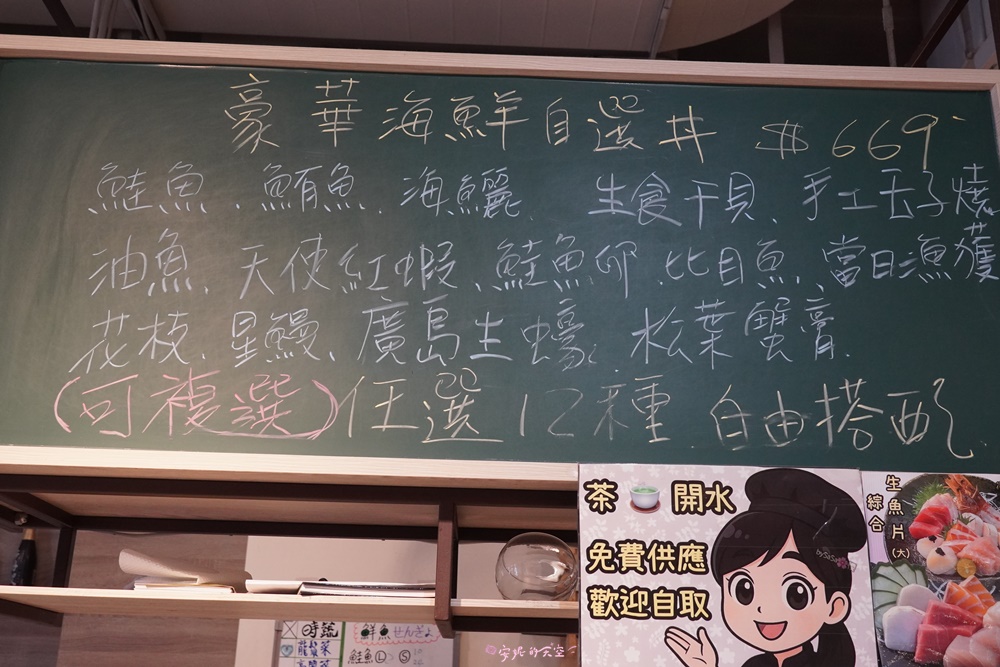 豪華海鮮自選丼 $669
鮭魚、鮪魚、海鱺、生食干貝、手工玉子燒
油魚、天使紅蝦、鮭魚卵、比目魚、當日漁獲
花枝、星鰻、廣島生蠔、松葉蟹膏
(可複選)任選12種 自由搭配
茶 開水
免費供應
歡迎自取
bySaSa
生魚片(大)
綜合
時蔬
龍鬚菜
鮮魚せんぎょ
鮭魚 Ⓛ Ⓢ
安妮的天空